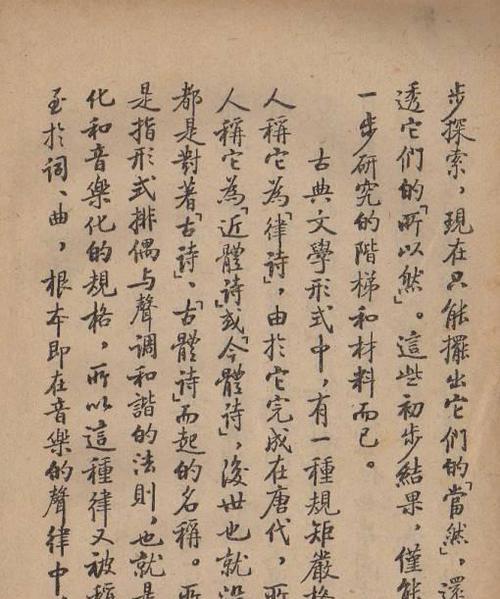 步探索，現在只能擺出它們的「當然」，還
透它們的「所以然」。這些初步結果，僅能
一步研究的階梯和材料而已。
古典文學形式中，有一種規矩嚴格
人稱它為「律詩」，由於它完成在唐代，所
人稱它為「近體詩」或「今體詩」，後世也就沿
都是對著「古詩」、「古體詩」而起的名稱。所
是指形式排偶与聲調和諧的法則，也就是
化和音樂化的規格，所以這種律又被稱
至於詞、曲，根本即在音樂的聲律中，